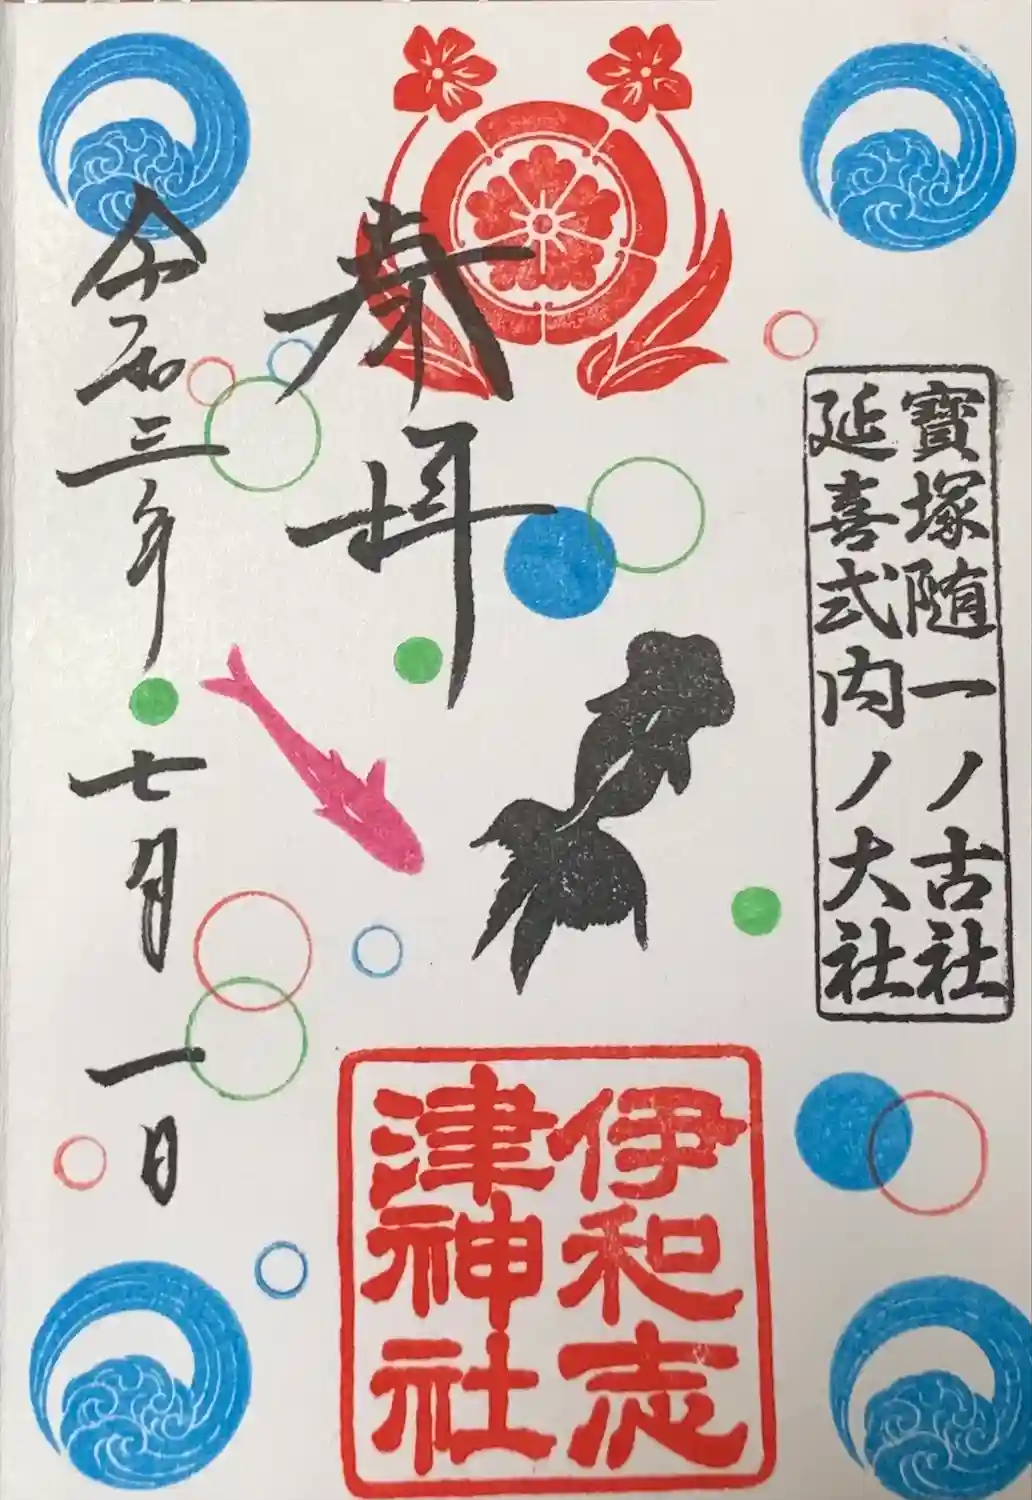 寶塚随一ノ古社
延喜式内ノ大社
奉拝
伊和志
津神社
令和三年七月一日